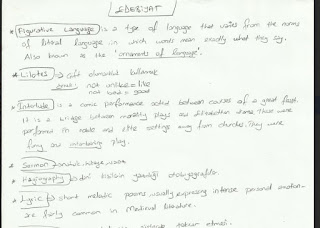 EDEBİYAT
* Figurative Language) is a type of language that varies from the norms
of literal language, in which words mean exactly what they say.
Also known as the "ornaments of language".
* Litotes → çift olumsuzluk kullanmak
not unlike = like
not bad = good
* Interlude) is a comic performance acted between courses of a great feast.
It is a bridge between morality plays and Elizabethan drama. These were
performed in noble and elite settings away from churches. They were
funny and entertaining plays.
* Sermon →
* Hagiography → dini kişilerin yazdığı otobiyografiler.
* Lyric → short melodic poems, usually expressing intense personal emotion
are fairly common in Medieval literature.
tekrar etmesi.